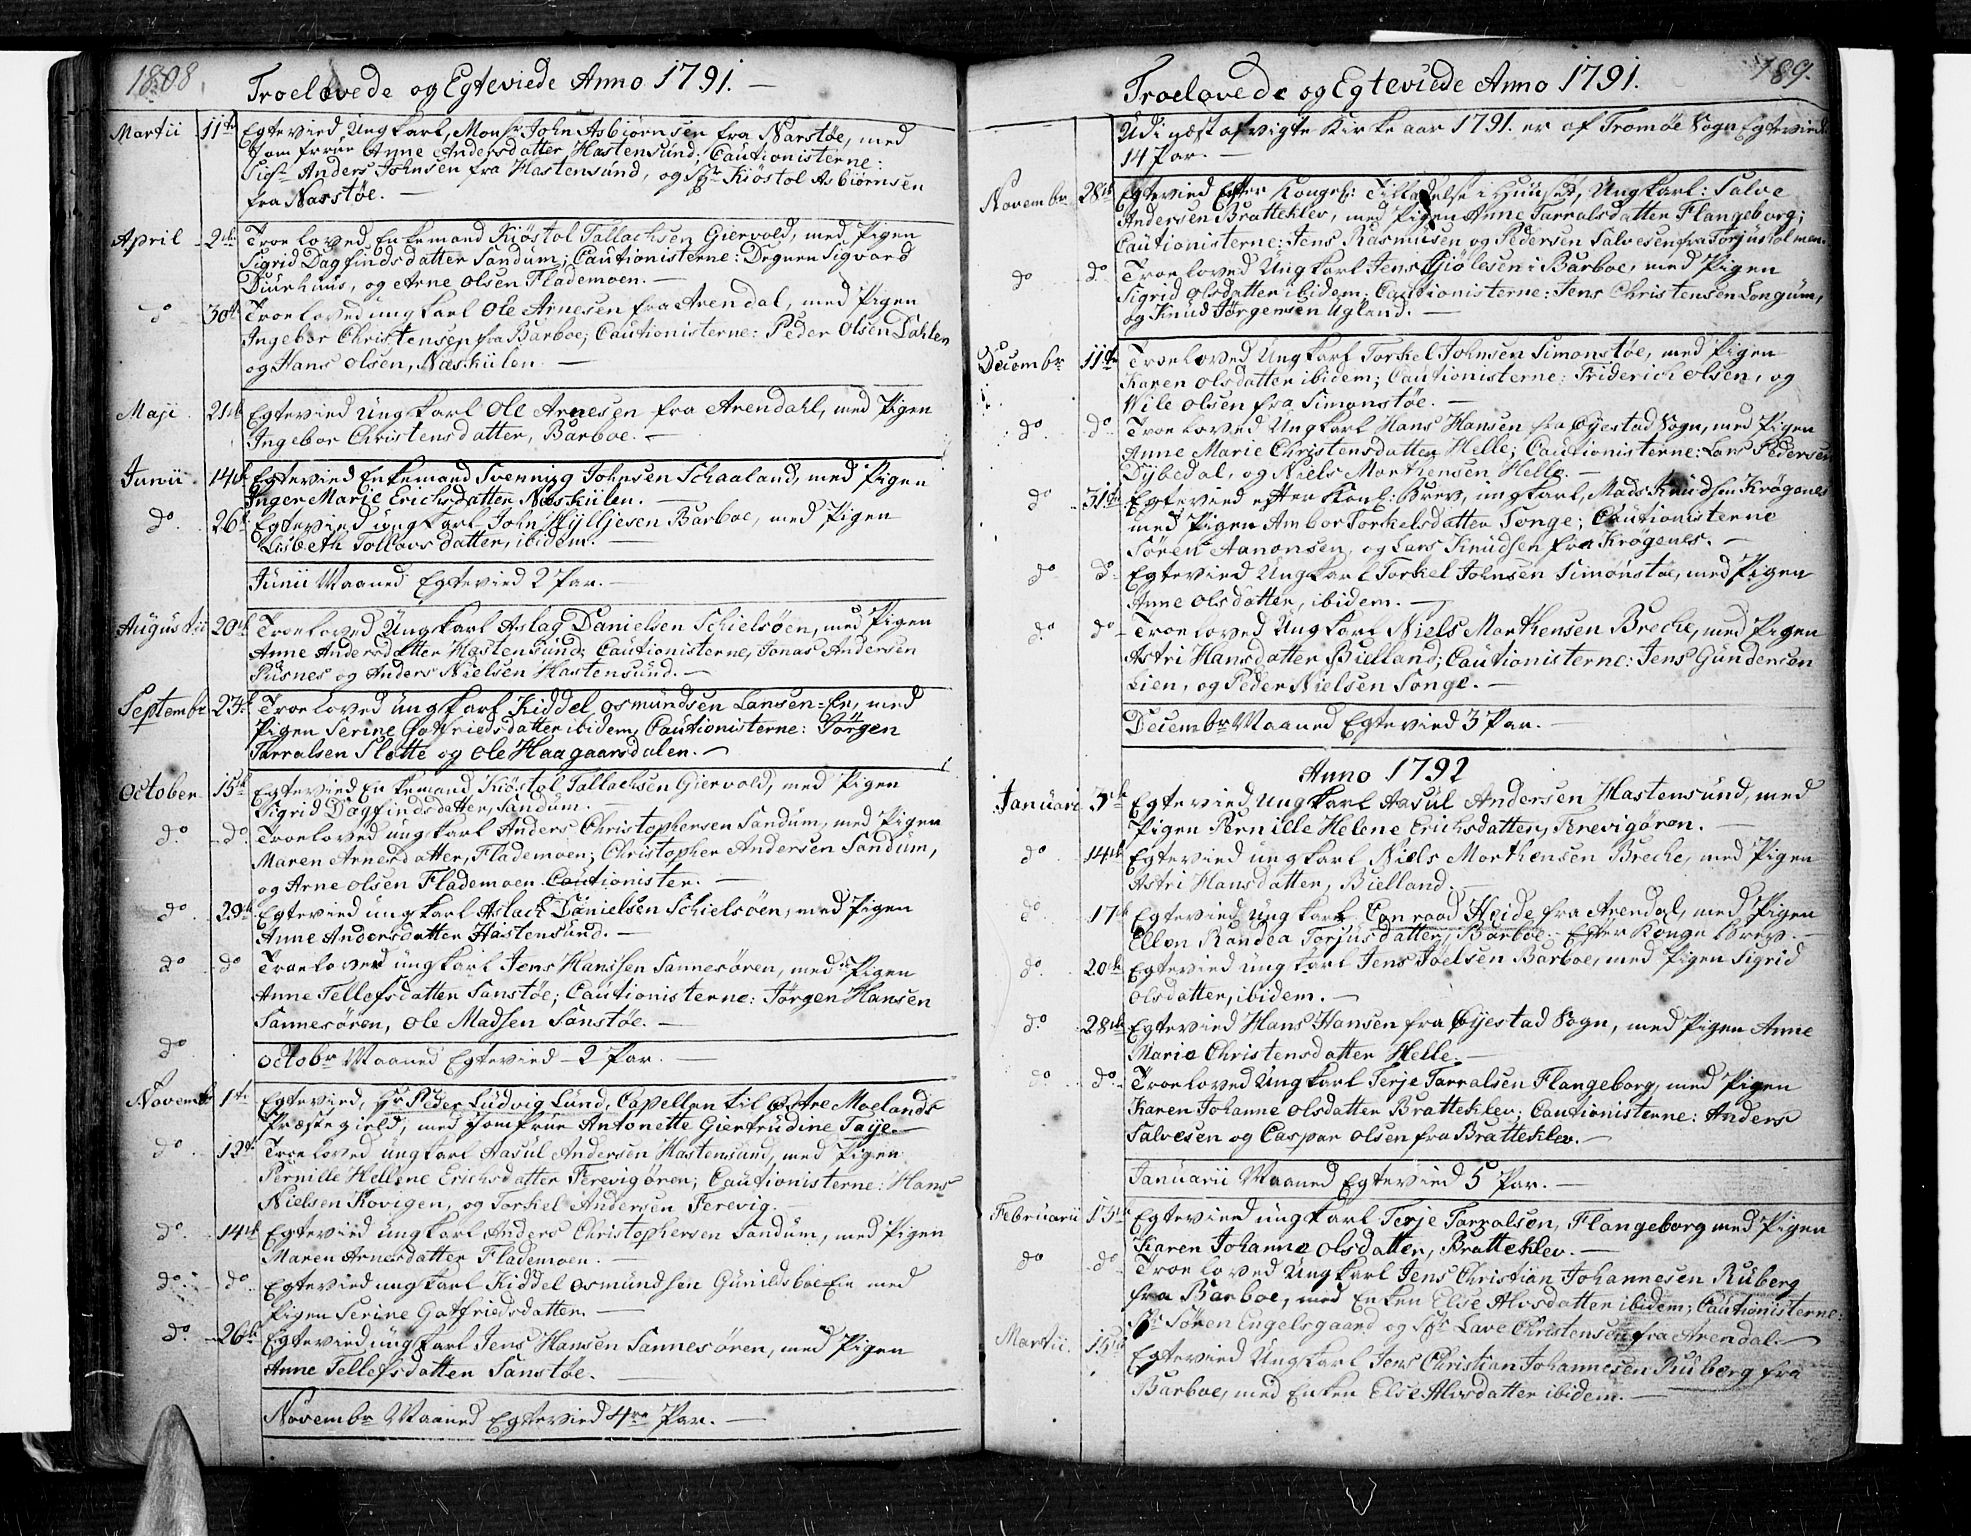 1808
Troelovede og Egteviede Anno 1791. —
Martii 11te Egtevied Ungkarl, Monsr John Asbiørnsen fra Narstøe, med
Jomfrue Anne Andersdatter Hastensund; Cautionisterne:
Sigr Anders Johnsen fra Hastensund, og Sgr Kiøstol Asbiørnsen
fra Narstøe. —
April 2de Troeloved Enkemand Kiøstol Tallachsen Giervold, med Pigen
Sigrid Dagfindsdatter Sandum; Cautionisterne: Degnen Sigvard
Duurhuus, og Arne Olsen Flademoen. —
do 30te Troeloved ungkarl Ole Arnesen fra Arendal, med Pigen
Ingebor Christensen fra Barboe; Cautionisterne: Peder Olsen Dahlen
og Hans Olsen, Næskilen. —
Maji 21de Egtevied Ungkarl Ole Arnesen fra Arendahl, med Pigen
Ingebor Christensdatter, Barboe. —
Junii 14de Egtevied Enkemand Svennug Johnsen Schaaland, med Pigen
Inger Marie Erichsdatter Næskilen. —
do. 26de Egtevied ungkarl John Hylljesen Barboe, med Pigen
Lisbeth Tollavsdatter, ibidem. —
Junii Maaned Egtevied 2 Par. —
Augustii 20de Troeloved Ungkarl Aslag Danielsen Schielsøen, med Pigen
Anne Andersdatter Hastensund; Cautionisterne, Jonas Andersen
Püsnes og Anders Nielsen Hastensund. —
Septembr 23de Troeloved ungkarl Kiddel Osmundsen Lansen-En, med
Pigen Serine Gotfriedsdatter ibidem, Cautionisterne: Jörgen
Tarralsen Slotte og Ole Haagaarsdalen. —
October 15de Egtevied Enkemand Kiøstol Tallachsen Giervold, med Pigen
Sigrid Dagfindsdatter, Sandum. —
do. do. Troeloved ungkarl Anders Christophersen Sandum, med Pigen
Maren Arnesdatter, Flademoen; Christopher Andersen Sandum,
og Arne Olsen Flademoen Cautionister. —
do. 29de Egtevied ungkarl Aslach Danielsen Schielsøen, med Pigen
Anne Andersdatter Hastensund. —
do do Troeloved ungkarl Jens Hanssen Sannesøren, med Pigen
Anne Tellefsdatter Sanstøe; Cautionisterne: Jørgen Hansen
Sannesøren, Ole Madsen Sanstøe. —
do
Octobr Maaned Egtevied - 2 Par. —
Novembr 1te Egtevied, Hr Peder Ludvig Lund, Capellan til Østre Molands
Præstegield, med Jomfrue Antonette Giertrudine Taye. —
do. 12te Troeloved ungkarl Aasul Andersen Hastensund, med Pigen
Pernille Hellene Erichsdatter Ferevigøren; Cautionisterne: Hans
Nielsen Kovigen, og Torkel Andersen Ferevig. —
do. 14de Egtevied ungkarl Anders Christophersen Sandum, med Pigen
Maren Arnesdatter Flademoen. —
do. do. Egtevied ungkarl Kiddel Osmundsen Gunildsboe-En med
Pigen Serine Gotfriedsdatter. —
do. 26de Egtevied ungkarl Jens Hansen Sannesøren, med Pigen
Anne Tellefsdatter Sanstøe. —
Novembr Maaned Egtevied 4re Par. —
189.
Troelovede og Egteviede Anno 1791.
Udi næst afvigte Kirke aar 1791. er af Tromøe Sogn Egtevied
14 Par. —
Novembr 28de Egtevied Efter Kongel: Tilladelse i Huuset, Ungkarl: Salve
Andersen Bratteklev, med Pigen Anne Tarralsdatter Flangeborg;
Cautionisterne: Jens Rasmusen og Pedersen Salvesen fra Torjusholmen.
do do Troeloved Ungkarl Jens Giølesen i Barboe, med Pigen
Sigrid Olsdatter ibidem; Cautionisterne: Jens Christensen Longum,
og Knud Jørgensen Ugland. —
Decembr 11te Troeloved Ungkarl Torkel Johnsen Simonstøe, med Pigen
Karen Olsdatter ibidem; Cautionisterne: Friderich Olsen, og
Wile Olsen fra Simonstøe. —
do. do. Troeloved Ungkarl Hans Hansen fra Øyestad Sogn, med Pigen
Anne Marie Christensdatter Helle; Cautionisterne: Lars Pedersen
Dybedal, og Niels Morthensen Helle. —
do 31te Egtevied efter Konl: Brev, ungkarl, Mads Knudsen Krøgenes
med Pigen Ambor Torkelsdatter Songe; Cautionisterne
Søren Aanonsen, og Lars Knudsen fra Krøgenes. —
do do Egtevied Ungkarl Torkel Johnsen Simonstøe, med Pigen
Anne Olsdatter, ibidem. —
do. do Troeloved Ungkarl Niels Morthensen Breche, med Pigen
Astri Hansdatter Bielland; Cautionisterne: Jens Gundersen
Lien, og Peder Nielsen Songe. —
Decembr Maaned Egtevied 3 Par. —
Anno 1792
Januarii 3de Egtevied Ungkarl Aasul Andersen Hastensund, med
Pigen Pernille Helene Erichsdatter, Ferevigøren. —
do 14de Egtevied ungkarl Niels Morthensen Breche, med Pigen
Astri Hansdatter, Bielland.
do. 17de Egtevied Ungkarl Conraad Heide fra Arendal, med Pigen
Ellen Randea Torjusdatter, Barboe - Efter Konge Brev. —
do. 20de Egtevied Ungkarl Jens Joelsen Barboe, med Pigen Sigrid
Olsdatter, ibidem. —
do. 28de Egtevied Hans Hansen fra Øyestad Sogn, med Pigen Anne
Marie Christensdatter Helle. —
do. do. Troeloved Ungkarl Terje Tarralsen Flangeborg, med Pigen
Karen Johanne Olsdatter Bratteklev; Cautionisterne: Anders
Salvesen og Caspar Olsen fra Bratteklev. —
Januarii Maaned Egtevied 5 Par. —
Februarii 15de Egtevied ungkarl Terje Tarralsen, Flangeborg med Pigen
Karen Johanne Olsdatter, Bratteklev. —
do do Troeloved Ungkarl Jens Christian Johannesen Ruberg
fra Barboe, med Enken Elise Alvsdatter ibidem; Cautionisterne:
Sr Søren Engelsgaard og Sgr Lave Christensen fra Arendal. —
Martii. 15de Egtevied Ungkarl Jens Christian Johannesen Ruberg fra
Barboe, med Enken Elise Alvsdatter ibidem. —